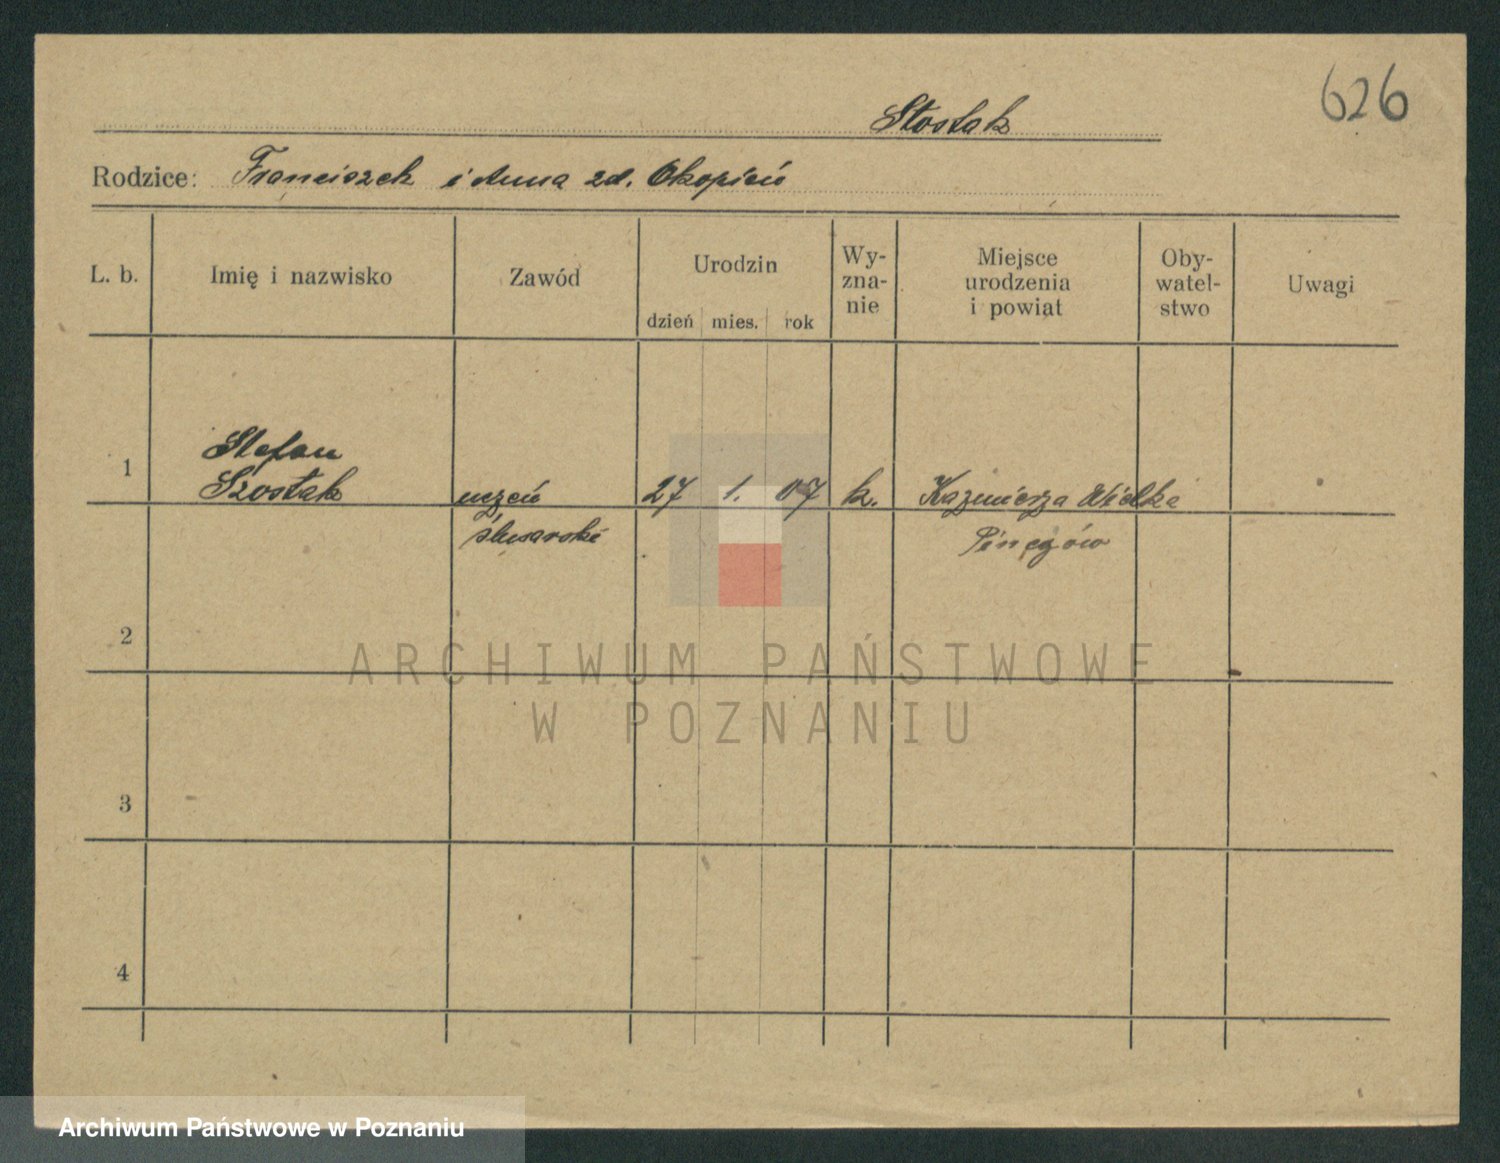 626
Szostak
Rodzice: Franciszek i Anna zd. Okopień
L. b. Imię i nazwisko Zawód Urodzin dzień mies. rok Wy-zna-nie Miejsce urodzenia i powiat Oby-watel-stwo Uwagi
1 Stefan
Szostak uczeń 27 1. 07 k. Kazimierza Wielka
ślusarski Pińczów
2
3
4
ARCHIWUM PAŃSTWOWE
W POZNANIU
Archiwum Państwowe w Poznaniu